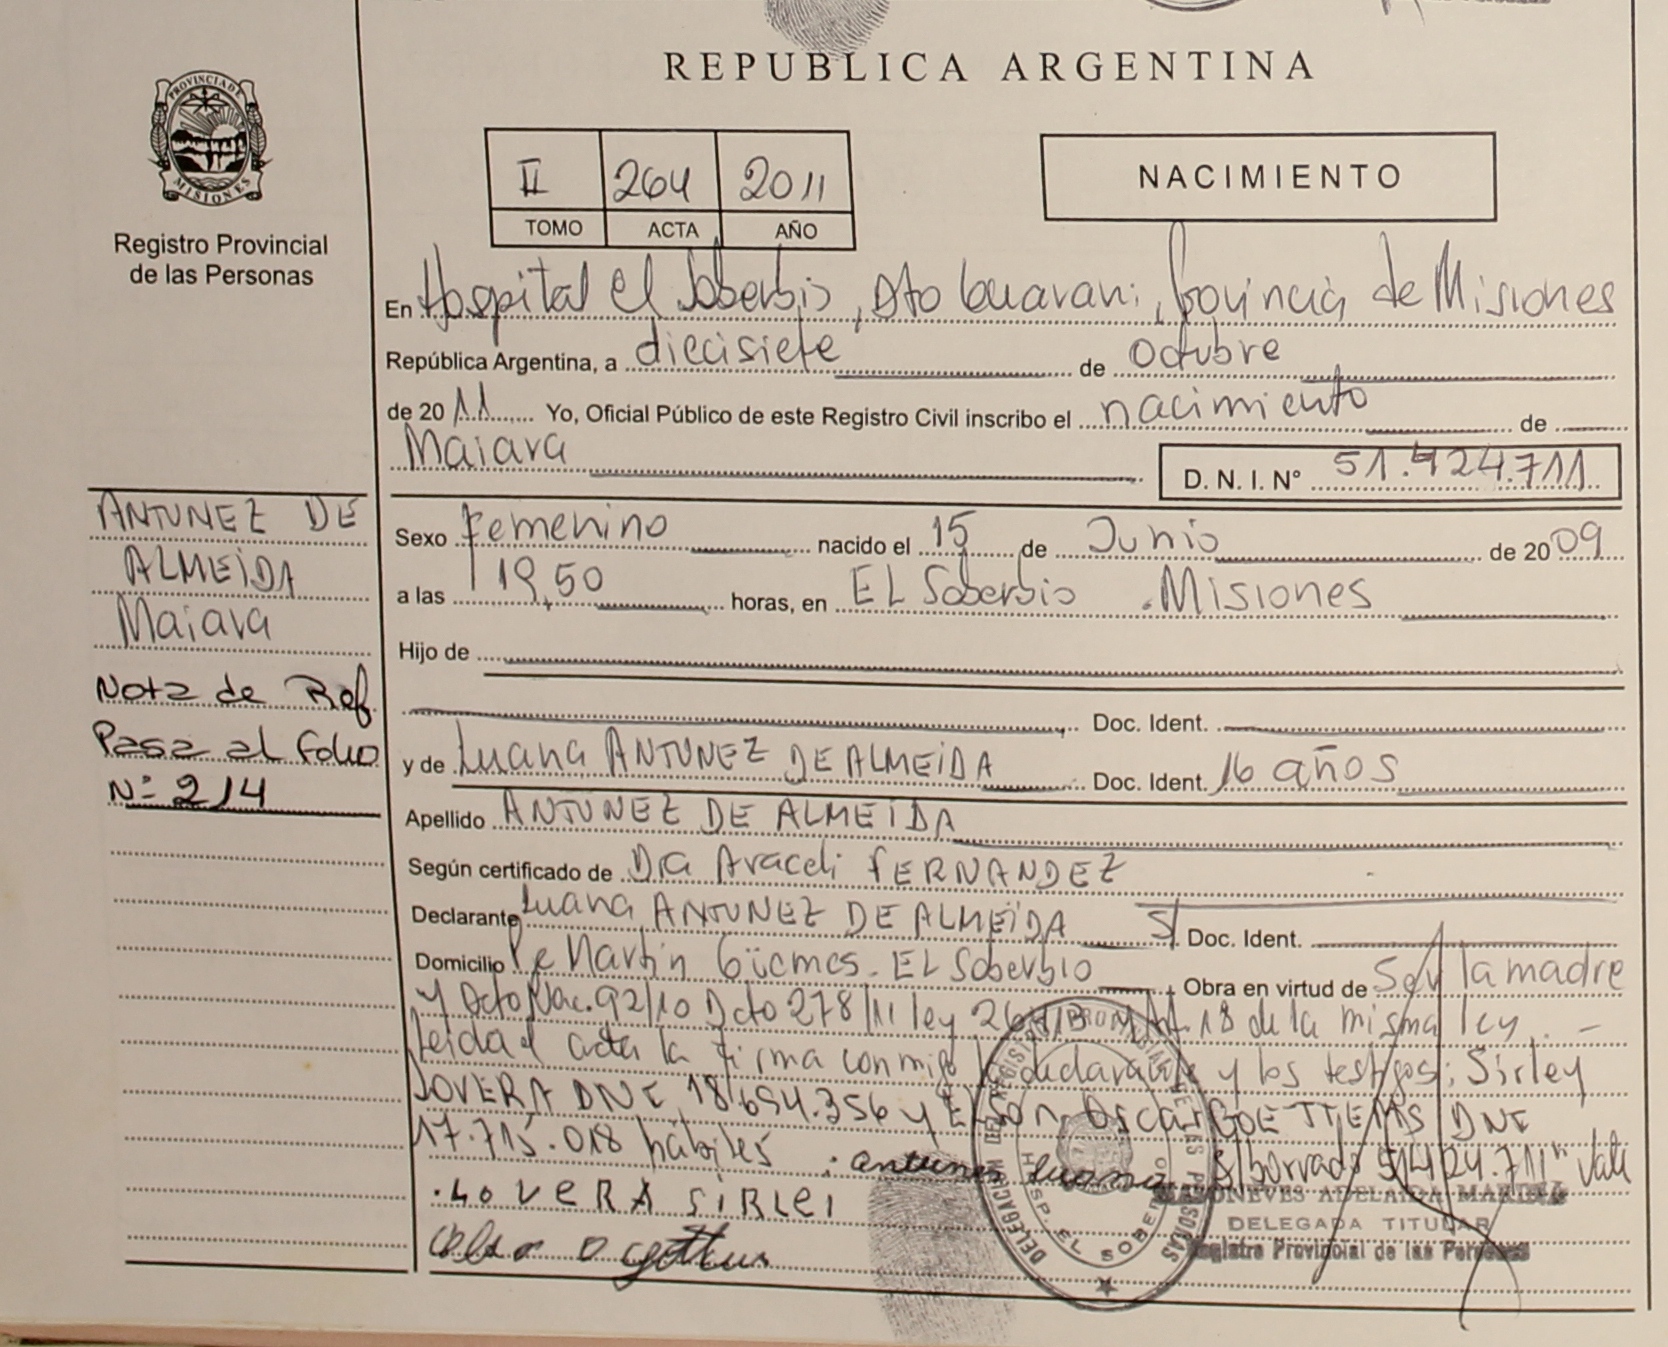 REPUBLICA ARGENTINA
PROVINCIA DE
MISIONES
Registro Provincial
de las Personas
II 264 2011
TOMO ACTA AÑO
NACIMIENTO
En Hospital El Soberbio, Dto Guarani, Provincia de Misiones
República Argentina, a diecisiete de octubre
de 2011 Yo, Oficial Público de este Registro Civil inscribo el nacimiento de
Maiara D. N. I. Nº 51.424.711
ANTUNEZ DE
ALMEIDA
Maiara
Nota de Ref.
Pasa al folio
Nº 214
Sexo Femenino nacido el 15 de Junio de 2009
a las 19,50 horas, en EL Soberbio .Misiones
Hijo de
Doc. Ident.
y de Luana ANTUNEZ DE ALMEIDA Doc. Ident. 16 años
Apellido ANTUNEZ DE ALMEIDA
Según certificado de Dra Araceli FERNANDEZ
Declarante Luana ANTUNEZ DE ALMEIDA S/ Doc. Ident.
Domicilio Pje Martin Güemes. EL Soberbio Obra en virtud de Ser la madre
y Dcto Nac. 92/10 Dcto 278/11 ley 26413 Art. 18 de la misma ley. -
leida el acta la firma conmigo la declarante y los testigos: Sirley
LOVERA DNI 18.694.356 y Oscar GOETTEMS DNI
17.715.018 hábiles : antunes luana S/borrado 51424.711" Vale
.LOVERA SIRLEI
DELEGADA TITULAR
Registro Provincial de las Personas
HOSP. EL SOBERBIO